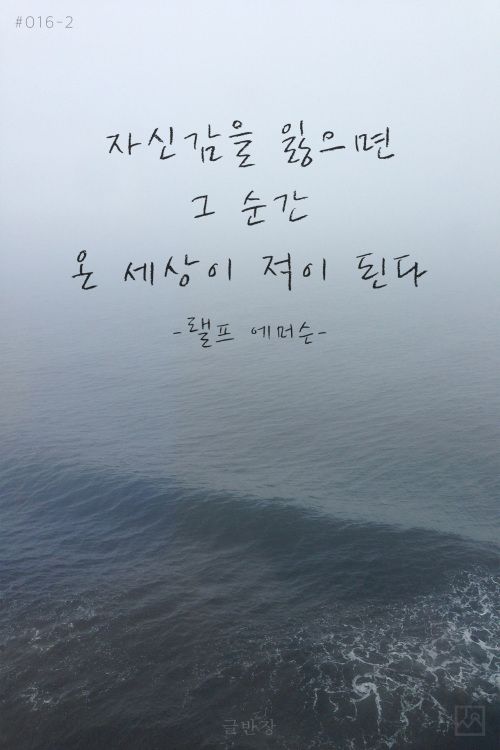 #016-2
자신감을 잃으면
그 순간
온 세상이 적이 된다
-랠프 에머슨-
글반장